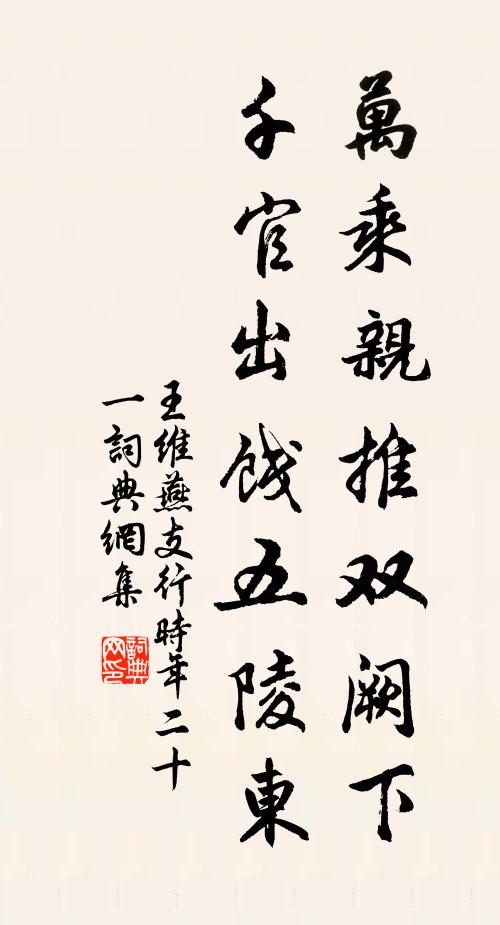 萬乘親推双阙下
千官出饯五陵東
王維燕支行時年二十
一詞典網集
詞典网印